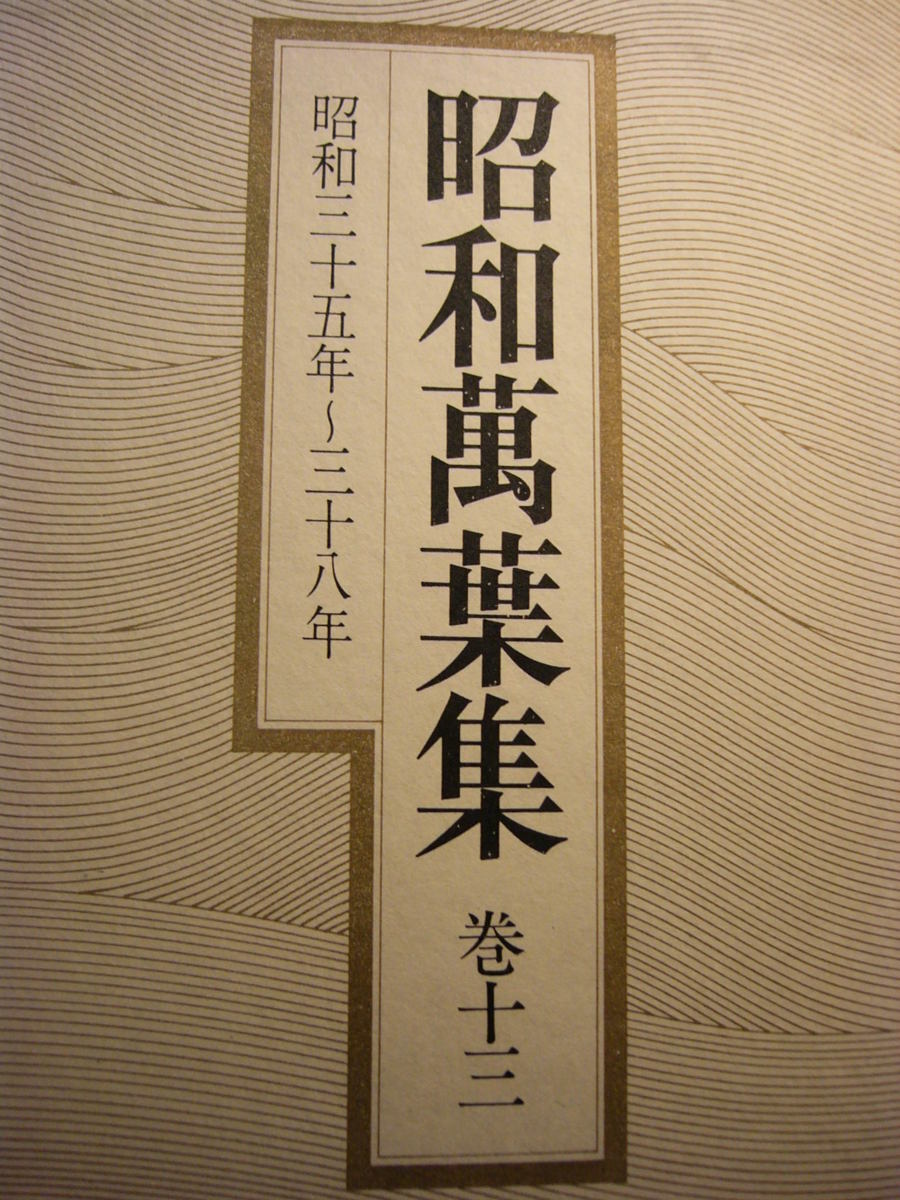 昭和萬葉集 巻十三
昭和三十五年~三十八年